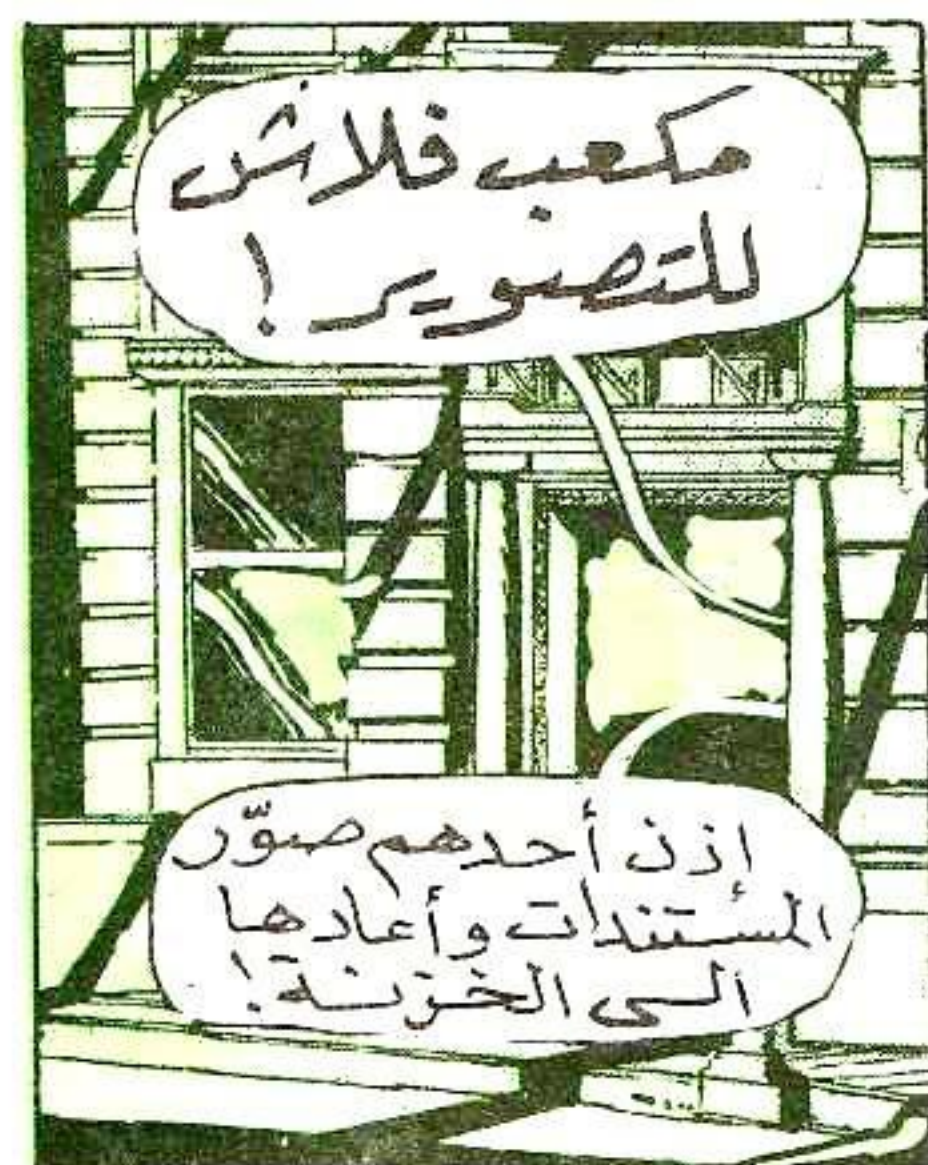 مكعب فلاش
للتصوير!
إذن أحدهم صوّر
المستندات وأعادها
الى الخزنة!